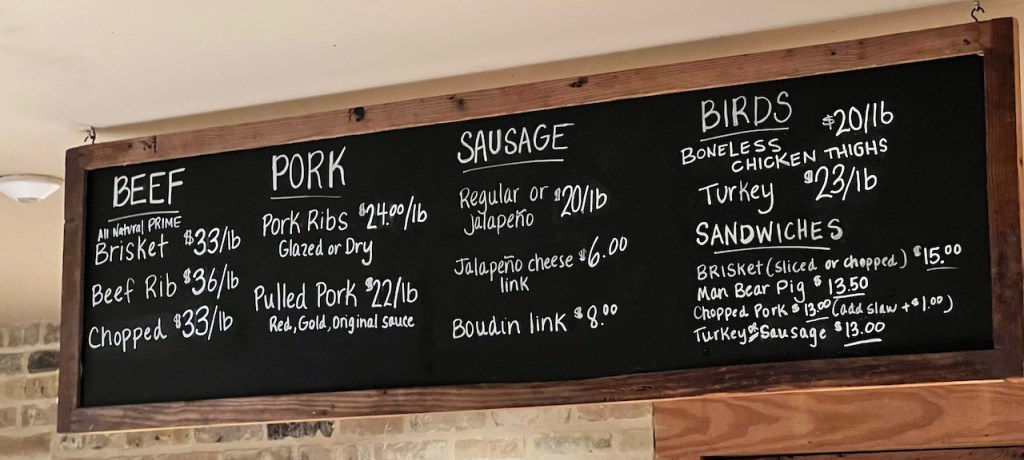 BEEF
All Natural PRIME
Brisket $33/lb
Beef Rib $36/lb
Chopped $33/lb
PORK
Pork Ribs $24.00/lb
Glazed or Dry
Pulled Pork $22/lb
Red, Gold, Original sauce
SAUSAGE
Regular or $20/lb
Jalapeño
Jalapeño cheese $6.00
link
Boudin link $8.00
BIRDS
$20/lb
BONELESS
CHICKEN THIGHS
Turkey $23/lb
SANDWICHES
BRISKET (sliced or chopped) $15.00
Man Bear Pig $13.50
Chopped Pork $13.00 (add slaw +$1.00)
Turkey or Sausage $13.00